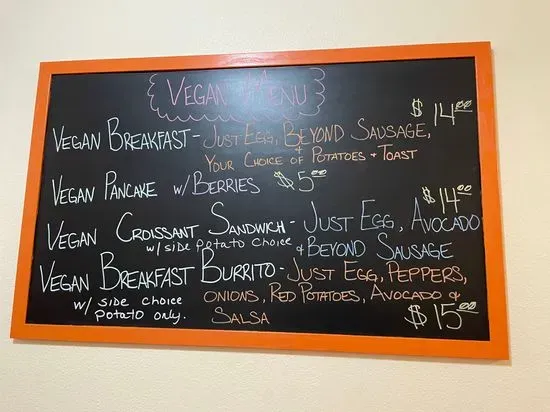 VEGAN MENU
VEGAN BREAKFAST - JUST EGG, BEYOND SAUSAGE, $14.00
& YOUR CHOICE OF POTATOES + TOAST
VEGAN PANCAKE W/BERRIES $5.00
VEGAN CROISSANT SANDWICH - JUST EGG, AVOCADO $14.00
w/side potato choice & BEYOND SAUSAGE
VEGAN BREAKFAST BURRITO - JUST EGG, PEPPERS,
w/ side choice ONIONS, RED POTATOES, AVOCADO &
potato only. SALSA $15.00